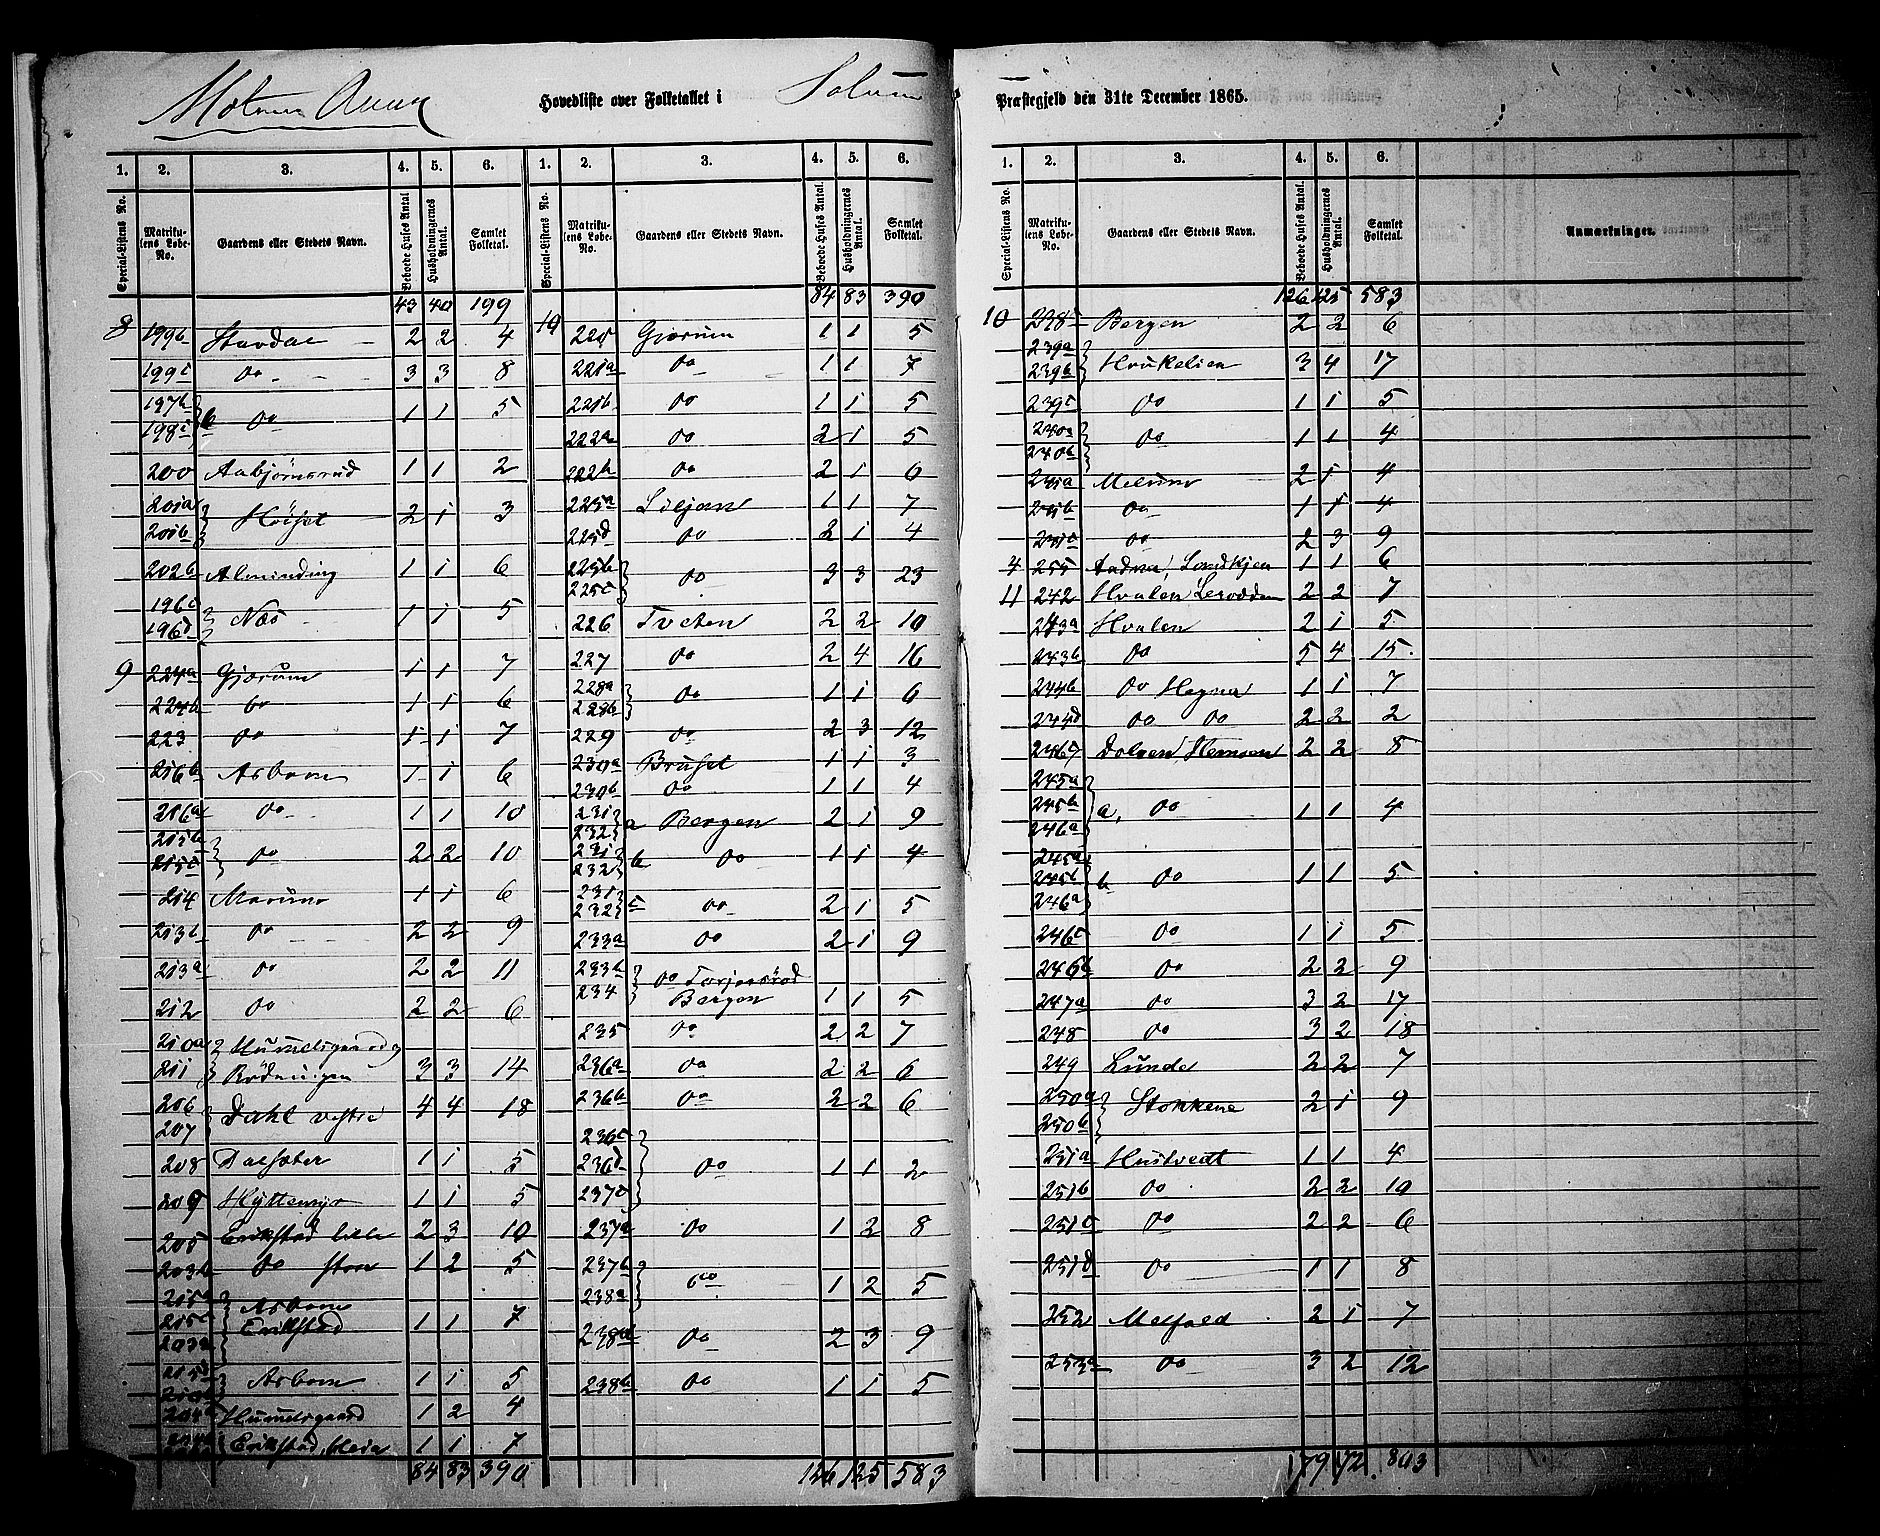 Melums Annex Hovedliste over Folketallet i Solum Præstegjeld den 31te December 1865.
1. 2. 3. 4. 5. 6. 1. 2. 3. 4. 5. 6. 1. 2. 3. 4. 5. 6.
Special-Listens No. Matrikulens Løbe-No. Gaardens eller Stedets Navn. Beboede Huses Antal Husholdningernes Antal. Samlet Folketal.
Special-Listens No. Matrikulens Løbe-No. Gaardens eller Stedets Navn. Beboede Huses Antal. Husholdningernes Antal. Samlet Folketal.
Special-Listens No. Matrikulens Løbe-No. Gaardens eller Stedets Navn. Beboede Huses Antal. Husholdningernes Antal. Samlet Folketal. Anmærkninger.
43 40 199
8 199b Stavdal 2 2 4
199c do 3 3 8
197b 198c } b do 1 1 5
200 Aabjørnsrud 1 1 2
201a 201b } Høiset 2 1 3
202b Alminding 1 1 6
196c 196d } Næs 1 1 5
9 224a Gjærum 1 1 7
224b do 1 1 6
223 do 1 1 7
216b Asbom 1 1 6
216a do 1 1 10
215b 215c } do 2 2 10
214 Marum 1 1 6
213b do 2 2 9
213a do 2 2 11
212 do 2 2 6
210a } Hummelsgaard og
211 } Rødningen 3 3 14
206 207 } Dahl vestre 4 4 18
208 Dalsæter 1 1 5
209 Hyttemyr 1 1 5
205 Erikstad lille 2 3 10
203b do store 1 2 5
215a 215c 203a } Asbom Erikstad 1 1 7
215d } Asbom 1 1 5
204a Hummelsgaard 1 2 4
Erikstad, 1 1 7
84 83 390
84 83 390
10 220 Gjærum 1 1 5
221a do 1 1 7
221b do 1 1 5
222a do 2 1 5
222b do 2 1 6
225a Siljan 1 1 7
225d do 2 1 4
225b 225c } do 3 3 23
226 Tveten 2 2 10
227 do 2 4 16
228a 228b } do 1 1 6
229 do 2 3 12
230a Bruset 1 1 3
230b do 1 1 4
231 232 } a Bergen 2 1 9
231 232 } b do 1 1 4
231 232 } c do 2 1 5
233a do 2 1 9
233b } do Torjersrød
234 } Bergen 1 1 5
235 do 2 2 7
236a do 2 2 6
236b do 2 2 6
236c 236d 237c } do 1 1 2
237a do 1 2 8
237b 238a } do 1 2 5
238d do 2 3 9
238b do 1 1 5
126 125 583
126 125 583
10 238c Bergen 2 2 6
239a 239b } Haukelien 3 4 17
239c do 1 1 5
240a 240b } do 1 1 4
241a Melum 2 1 4
241b do 1 1 4
241c do 2 3 9
4 255 1 1 6
11 242 Hvalen 2 2 7
243a Hvalen 2 1 5
243b do 5 4 15
244b do Hagna 1 1 7
244d do do 2 2 2
246c Dolven, 2 2 8
245a 245b 246a } a, do 1 1 4
245a 245b 246a } b do 1 1 5
246c do 1 1 5
246b do 2 2 9
247a do 3 2 17
248 do 3 2 18
249 Lunde 2 2 7
250a 250b } Stokkene 2 1 9
251a Hustvedt 1 1 4
251b do 2 2 10
251c do 2 2 6
251d do 1 1 8
252 Melfald 2 1 7
253a do 3 2 12
179 172. 803